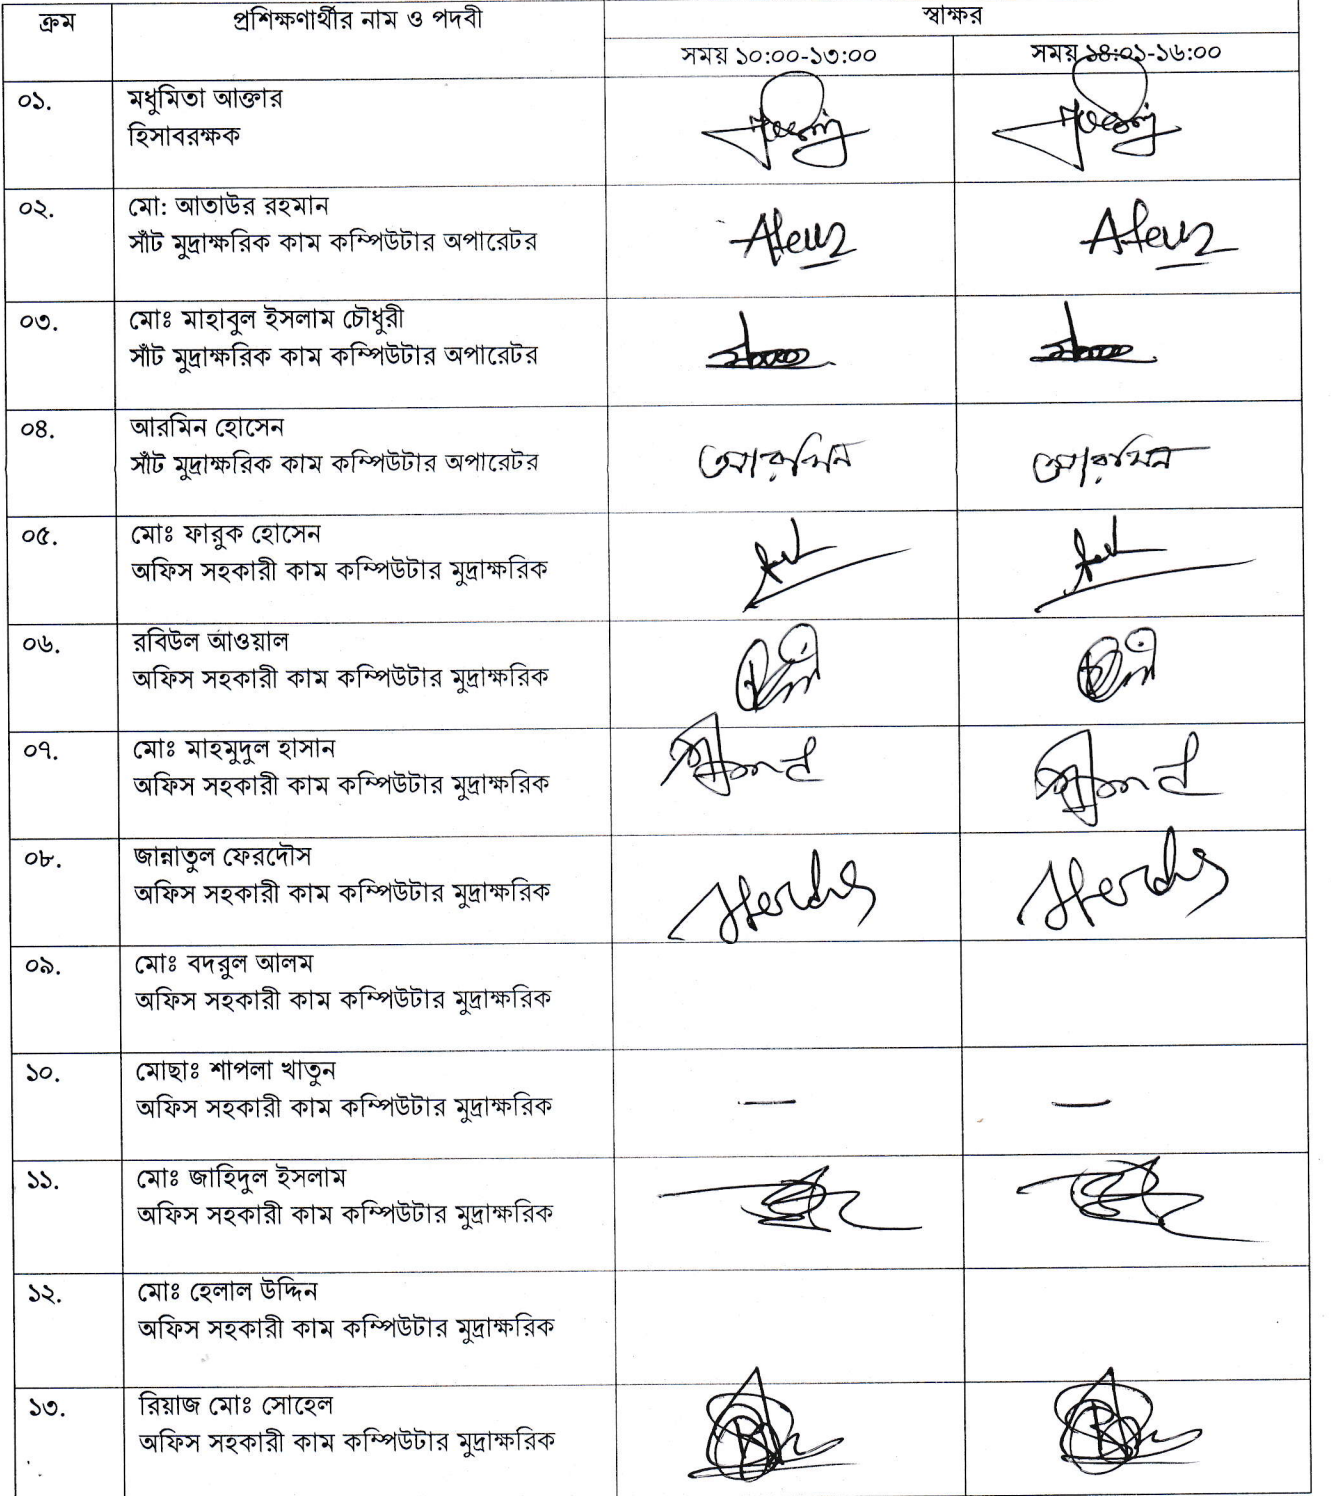 ক্রম
প্রশিক্ষণার্থীর নাম ও পদবী
স্বাক্ষর
সময় ১০:০০-১৩:০০
সময় ১৪:০১-১৬:০০
০১.
মধুমিতা আক্তার
হিসাবরক্ষক
০২.
মো: আতাউর রহমান
সাঁট মুদ্রাক্ষরিক কাম কম্পিউটার অপারেটর
০৩.
মোঃ মাহাবুল ইসলাম চৌধুরী
সাঁট মুদ্রাক্ষরিক কাম কম্পিউটার অপারেটর
০৪.
আরমিন হোসেন
সাঁট মুদ্রাক্ষরিক কাম কম্পিউটার অপারেটর
আরমিন
আরমিন
০৫.
মোঃ ফারুক হোসেন
অফিস সহকারী কাম কম্পিউটার মুদ্রাক্ষরিক
০৬.
রবিউল আওয়াল
অফিস সহকারী কাম কম্পিউটার মুদ্রাক্ষরিক
০৭.
মোঃ মাহমুদুল হাসান
অফিস সহকারী কাম কম্পিউটার মুদ্রাক্ষরিক
০৮.
জান্নাতুল ফেরদৌস
অফিস সহকারী কাম কম্পিউটার মুদ্রাক্ষরিক
০৯.
মোঃ বদরুল আলম
অফিস সহকারী কাম কম্পিউটার মুদ্রাক্ষরিক
১০.
মোছাঃ শাপলা খাতুন
অফিস সহকারী কাম কম্পিউটার মুদ্রাক্ষরিক
— —
১১.
মোঃ জাহিদুল ইসলাম
অফিস সহকারী কাম কম্পিউটার মুদ্রাক্ষরিক
১২.
মোঃ হেলাল উদ্দিন
অফিস সহকারী কাম কম্পিউটার মুদ্রাক্ষরিক
১৩.
রিয়াজ মোঃ সোহেল
অফিস সহকারী কাম কম্পিউটার মুদ্রাক্ষরিক